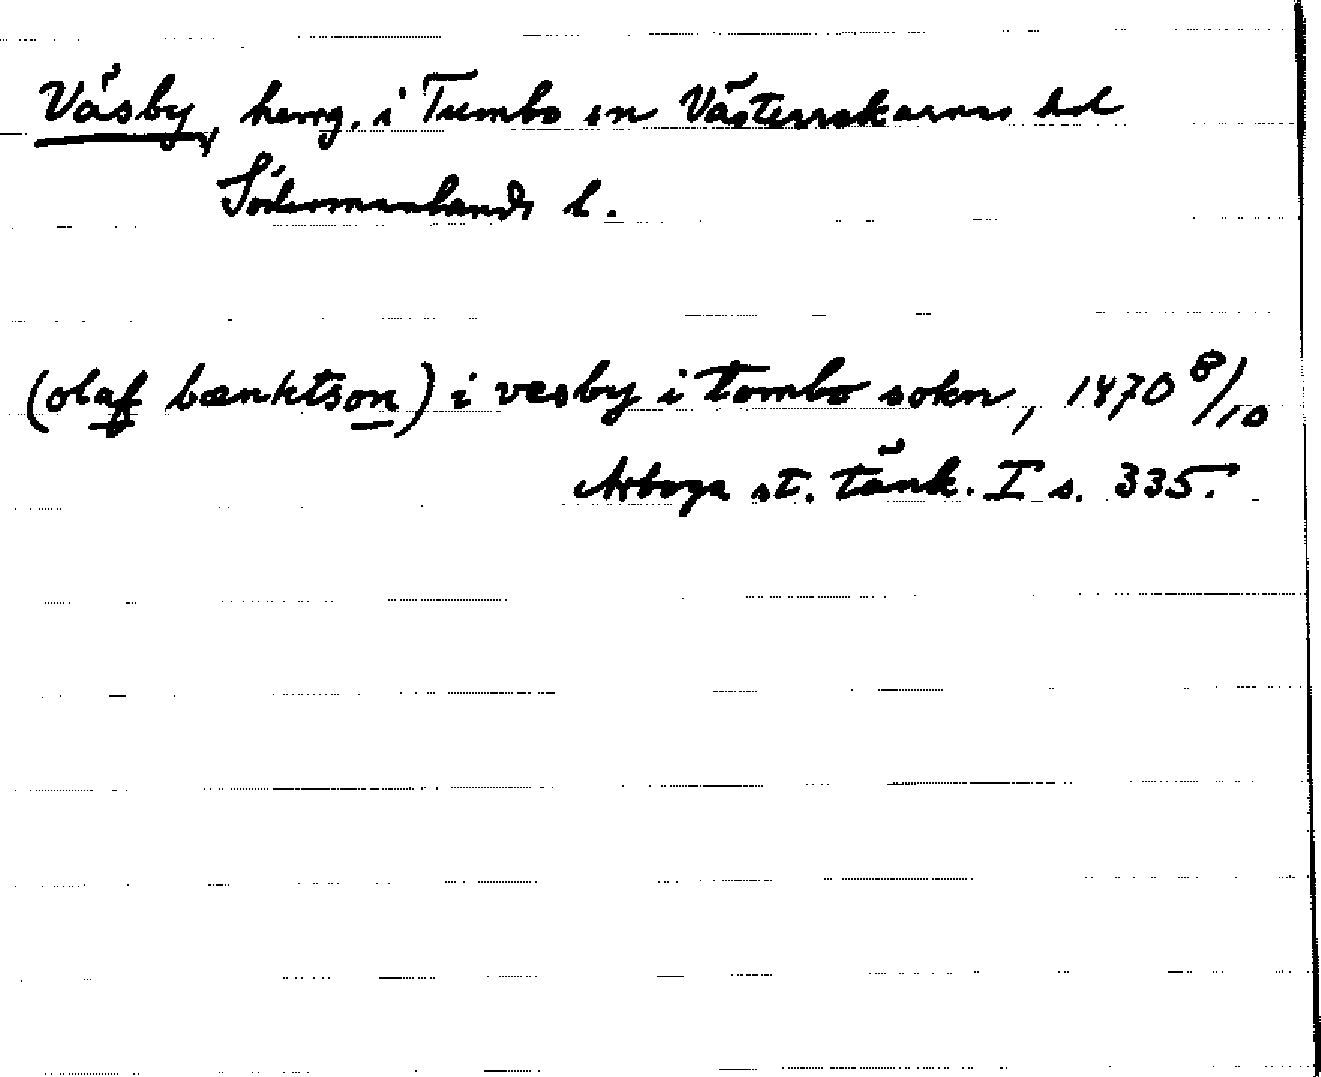 Väsby, hemg. i Tumbo sn Västerrekarnes hd
Södermanlands l.
(olaf bænktson) i vesby i tombo sokn, 1470 8/10
Arboga st. tänk. I s. 335.